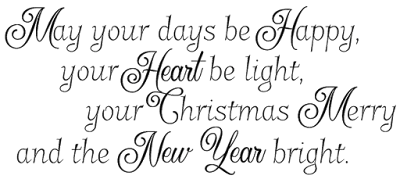 May your days be Happy,
your Heart be light,
your Christmas Merry
and the New Year bright.